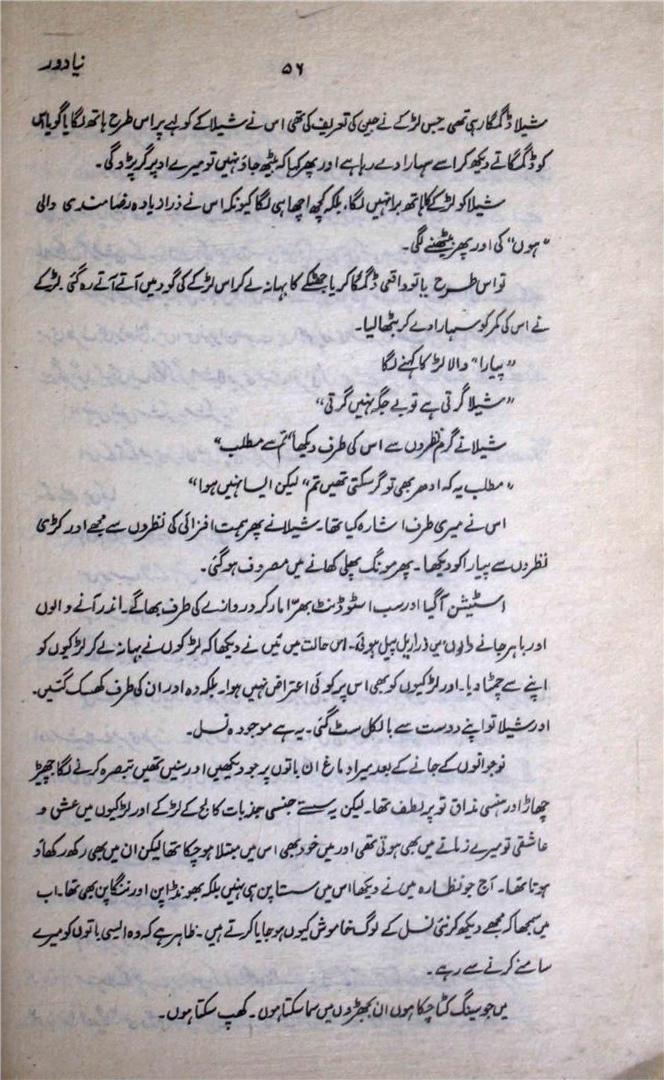 نیا دور
۵۶
شیلا ڈگمگا رہی تھی جس لڑکے نے جین کی تعریف کی تھی اس نے شیلا کے کولہے پر اس طرح ہاتھ لگایا گویا اس
کو ڈگمگاتے دیکھ کر اسے سہارا دے رہا ہے اور پھر کہا کہ بیٹھ جاؤ نہیں تو میرے اوپر گر پڑو گی۔
شیلا کو لڑکے کا ہاتھ برا نہیں لگا، بلکہ کچھ اچھا ہی لگا کیونکہ اس نے ذرا زیادہ رضامندی والی
"ہوں" کی اور پھر بیٹھنے لگی۔
تو اس طرح یا تو واقعی ڈگمگا کر یا جھٹکے کا بہانہ لے کر اس لڑکے کی گود میں آتے آتے رہ گئی لڑکے
نے اس کی کمر کو سہارا دے کر بٹھا لیا۔
"پیارا" والا لڑکا کہنے لگا
"شیلا گرتی ہے تو بے جگہ نہیں گرتی"
شیلا نے گرم نظروں سے اس کی طرف دیکھا "تم سے مطلب"
"مطلب یہ کہ ادھر بھی تو گر سکتی تھیں تم" لیکن ایسا نہیں ہوا"
اس نے میری طرف اشارہ کیا تھا۔ شیلا نے پھر ہمت افزائی کی نظروں سے مجھے اور کڑی
نظروں سے پیارا کو دیکھا۔ پھر مونگ پھلی کھانے میں مصروف ہو گئی۔
اسٹیشن آ گیا اور سب اسٹوڈنٹ بھرّا مار کر دروازے کی طرف بھاگے۔ اندر آنے والوں
اور باہر جانے والوں میں ذرا ریل پیل ہوئی۔ اس حالت میں میں نے دیکھا کہ لڑکوں نے بہانہ لے کر لڑکیوں کو
اپنے سے چمٹا دیا۔ اور لڑکیوں کو بھی اس پر کوئی اعتراض نہیں ہوا۔ بلکہ وہ اور ان کی طرف کھسک گئیں۔
اور شیلا تو اپنے دوست سے بالکل سٹ گئی۔ یہ ہے موجودہ نسل۔
نوجوانوں کے جانے کے بعد میرا دماغ ان باتوں پر جو دیکھیں اور سنیں تھیں تبصرہ کرنے لگا چھیڑ
چھاڑ اور ہنسی مذاق تو پر لطف تھا۔ لیکن یہ سستے جنسی جذبات کالج کے لڑکے اور لڑکیوں میں عشق و
عاشقی تو میرے زمانے میں بھی ہوتی تھی اور میں خود بھی اس میں مبتلا ہو چکا تھا لیکن ان میں بھی رکھ رکھاؤ
ہوتا تھا۔ آج جو نظارہ میں نے دیکھا اس میں سستا پن ہی نہیں بلکہ بھونڈا پن اور ننگا پن بھی تھا۔ اب
میں سمجھا کہ مجھے دیکھ کر نئی نسل کے لوگ خاموش کیوں ہو جایا کرتے ہیں۔ ظاہر ہے کہ وہ ایسی باتوں کو میرے
سامنے کرنے سے رہے۔
میں جو سینگ کٹا چکا ہوں ان بچھڑوں میں سما سکتا ہوں۔ کھپ سکتا ہوں۔